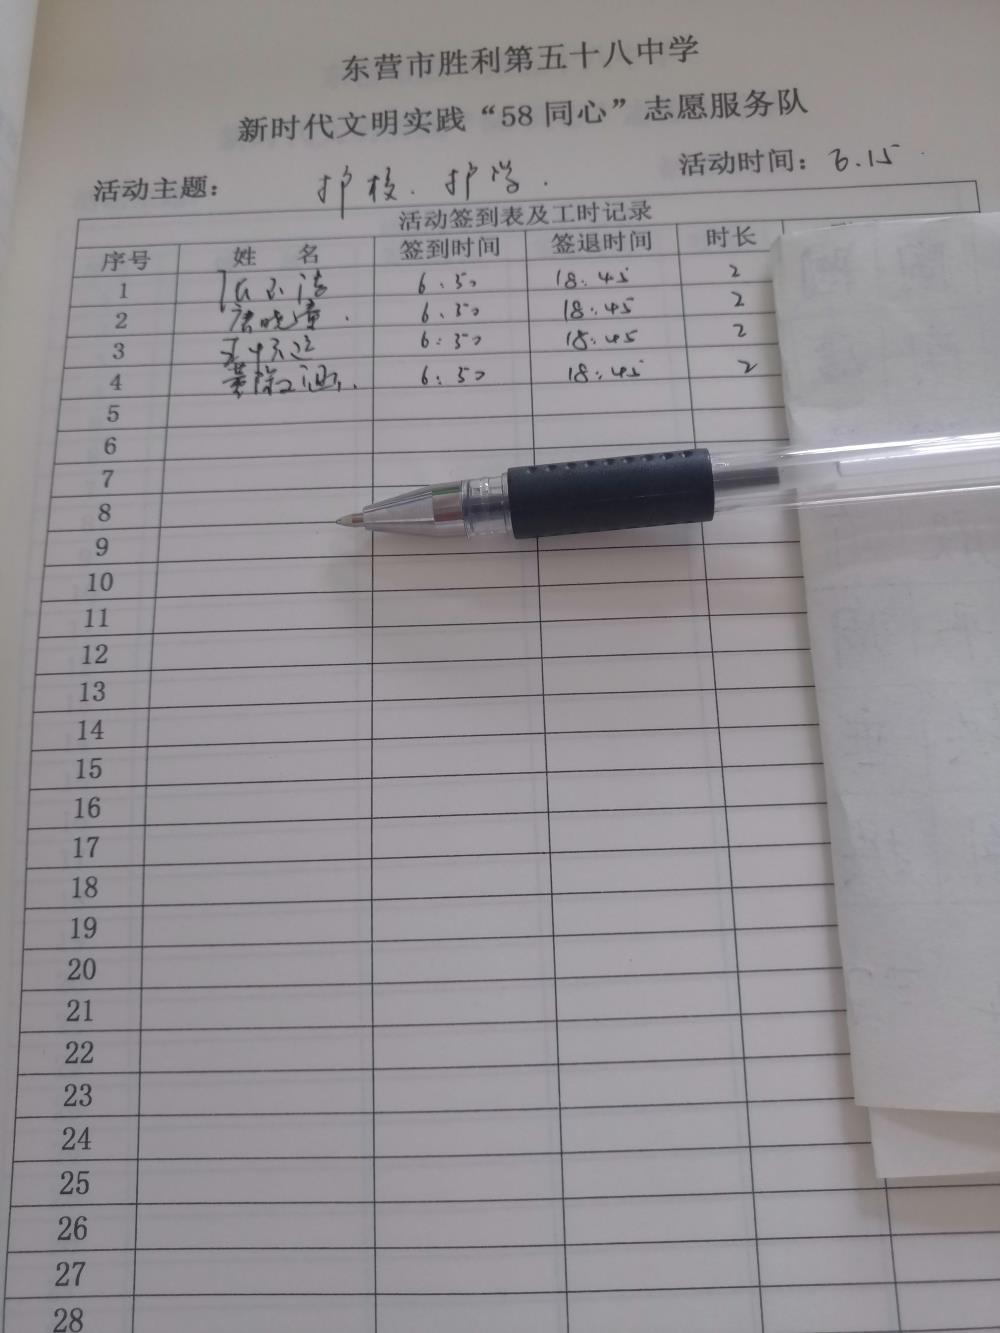 东营市胜利第五十八中学
新时代文明实践“58同心”志愿服务队
活动主题： 护校.护学. 活动时间：6.15
活动签到表及工时记录
序号 姓 名 签到时间 签退时间 时长
1 6:50 18:45 2
2 唐晓 6:50 18:45 2
3 6:50 18:45 2
4 6:50 18:45 2
5
6
7
8
9
10
11
12
13
14
15
16
17
18
19
20
21
22
23
24
25
26
27
28